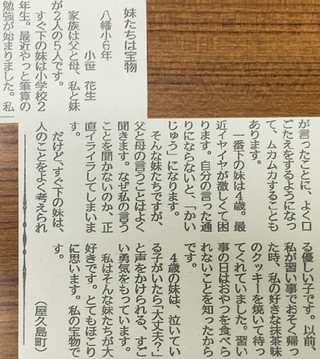 妹たちは宝物
八幡小6年
小笹 花生
家族は父と母、私と妹
が2人の5人です。
すぐ下の妹は小学校2
年生。最近やっと筆算の
勉強が始まりました。私
が言ったことに、よく口
ごたえをするようになっ
て、ムカムカすることも
あります。
一番下の妹は4歳。最
近イヤイヤが激しくて困
ります。自分の言った通
りにならないと、「かい
じゅう」になります。
そんな妹たちですが、
父と母の言うことはよく
聞きます。なぜ私の言う
ことを聞かないのか、正
直イライラしてしまいま
す。
だけど、すぐ下の妹は、
人のことをよく考えられ
る優しい子です。以前、
私が習い事でおそく帰っ
た時、私の好きな抹茶味
のクッキーを焼いて待っ
てくれていました。習い
事の日はおやつを食べら
れないことを知ったから
です。
4歳の妹は、泣いてい
る子がいたら「大丈夫?」
と声をかけられる、すご
い勇気をもっています。
私はそんな妹たちが大
好きです。とてもほこり
に思います。私の宝物で
す。
(屋久島町)